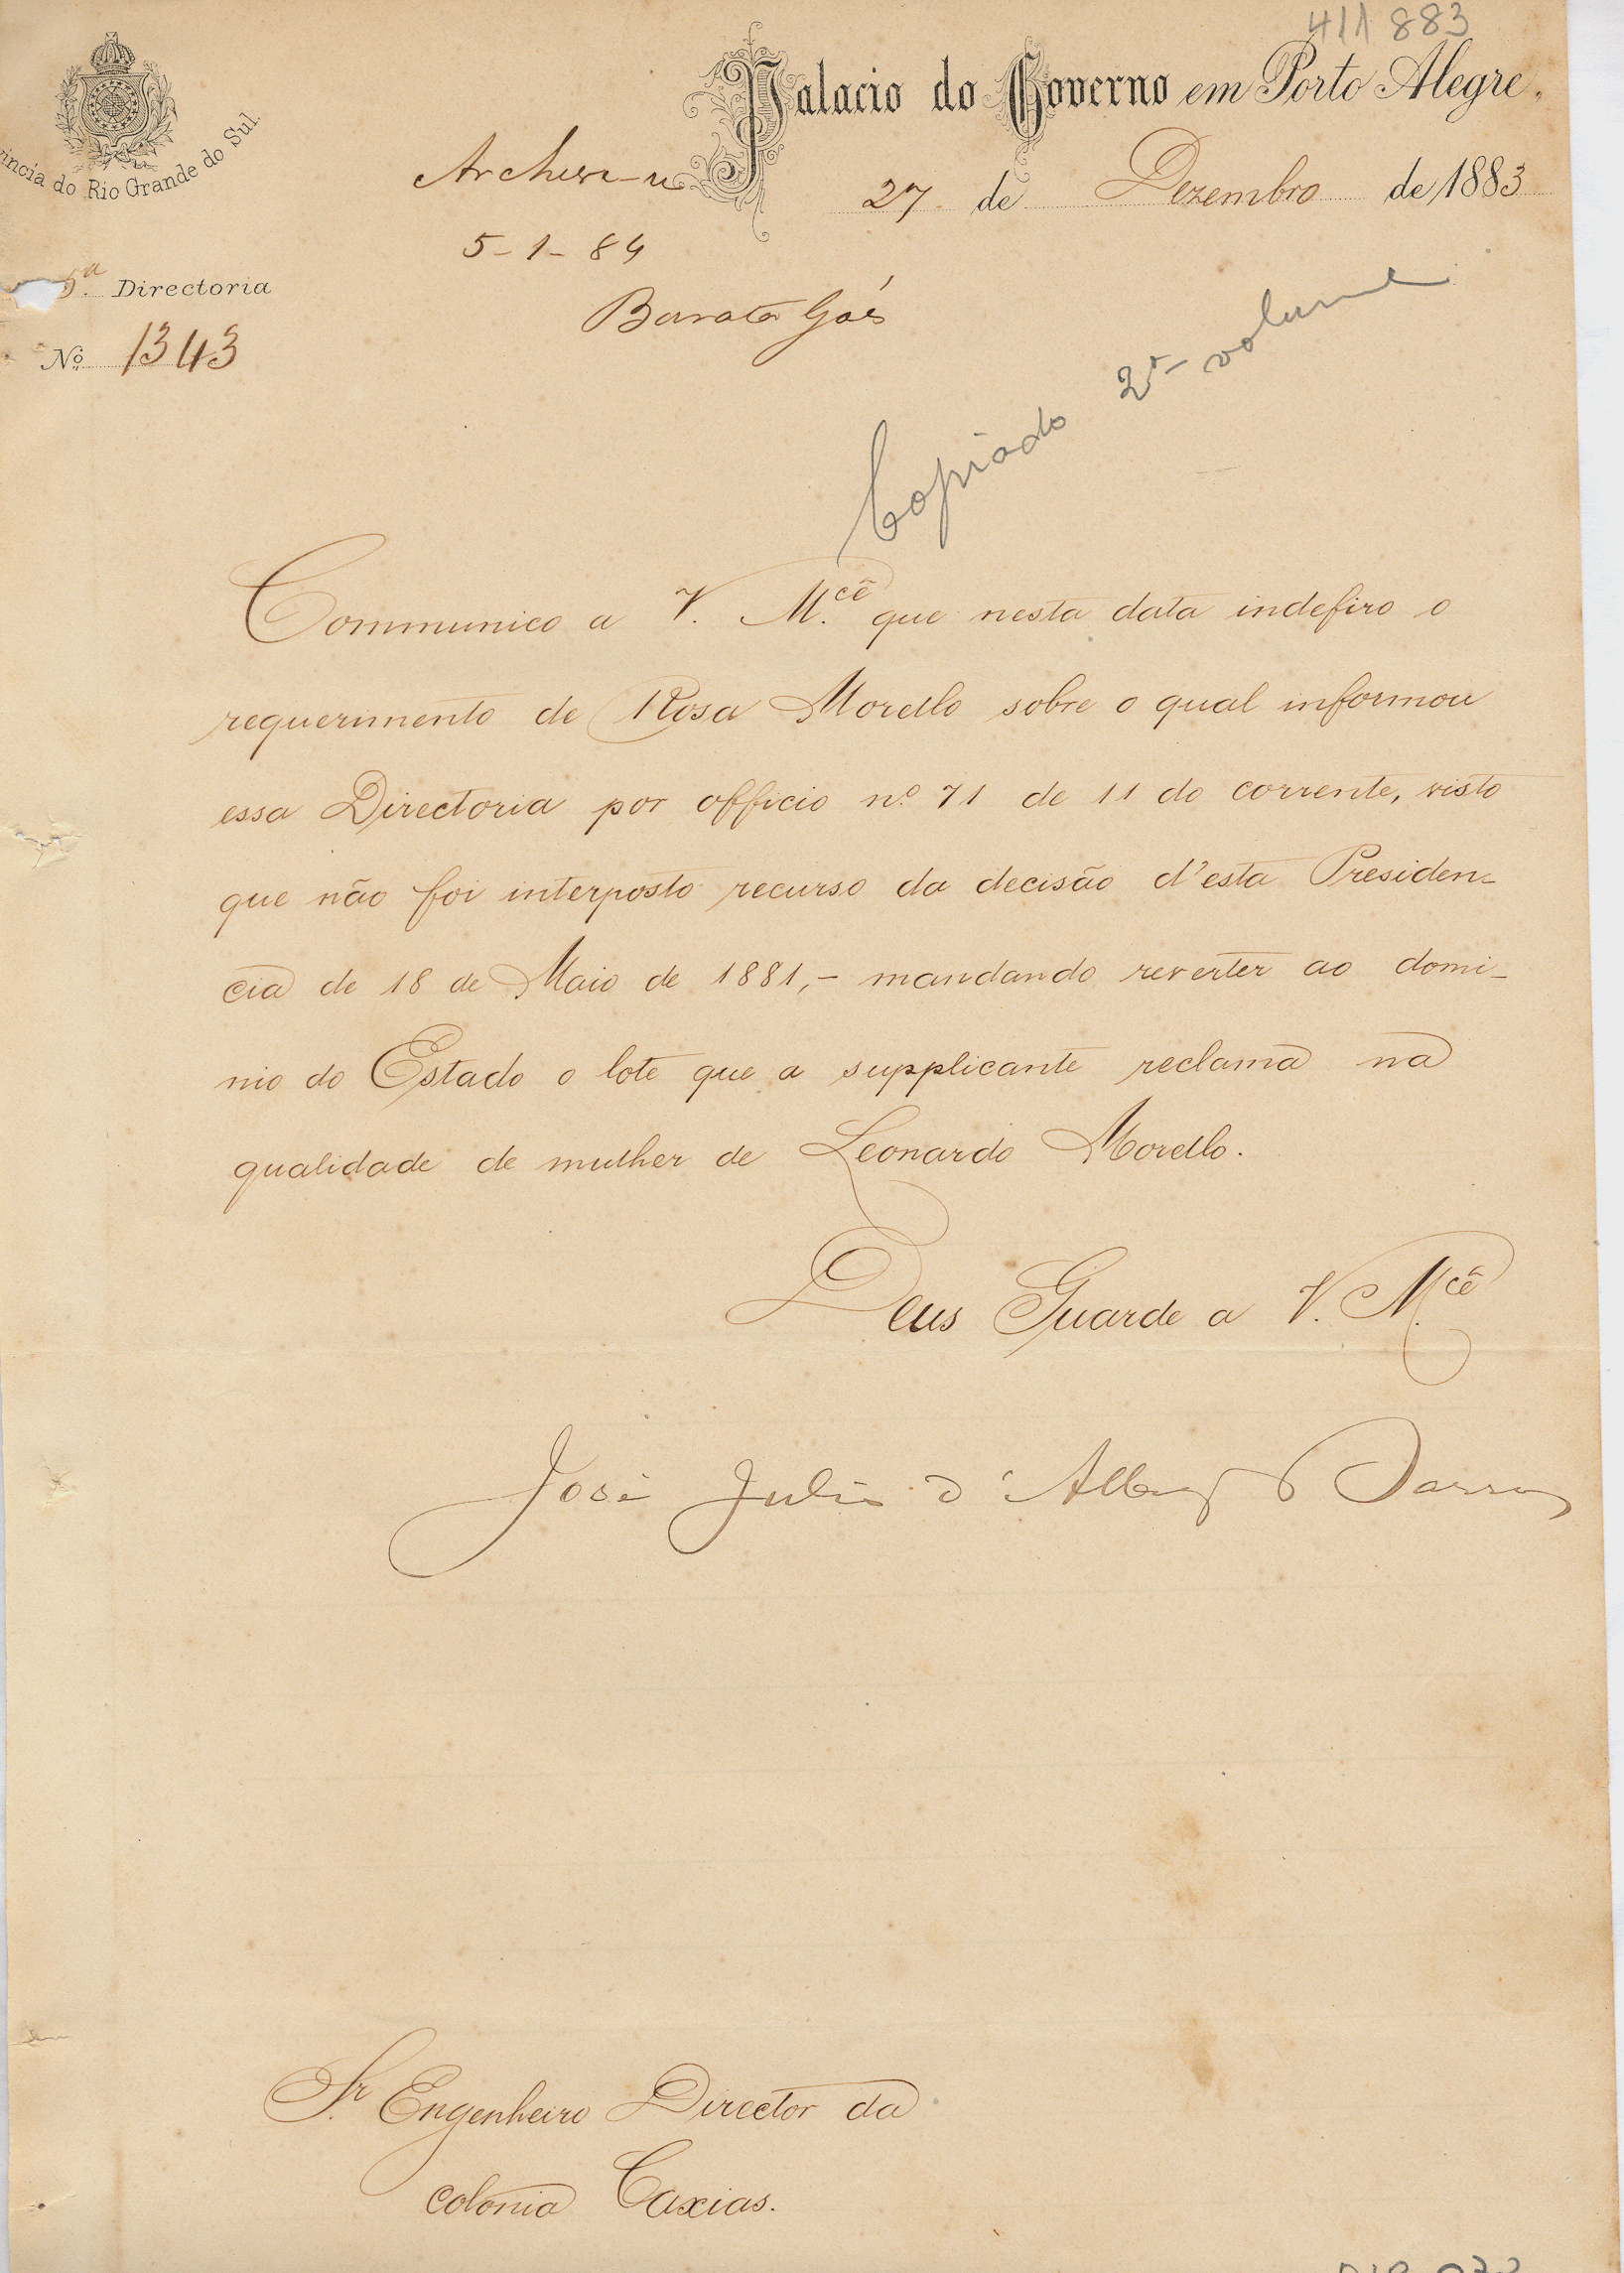 411 883
Palacio do Governo em Porto Alegre.
vincia do Rio Grande do Sul.
27 de Dezembro de 1883
Archive-se
5-1-84
Barata Góes
5.ª Directoria
Nº 1343
Copiado 2º volume
Communico a V. M.cê que nesta data indefiro o
requerimento de Rosa Morello sobre o qual informou
essa Directoria por officio nº 71 de 11 do corrente, visto
que não foi interposto recurso da decisão d'esta Presiden-
cia de 18 de Maio de 1881,- mandando reverter ao domi-
nio do Estado o lote que a supplicante reclama na
qualidade de mulher de Leonardo Morello.
Deus Guarde a V. M.cê
José Julio d'Albuq Barros
Sr. Engenheiro Director da
colonia Caxias.